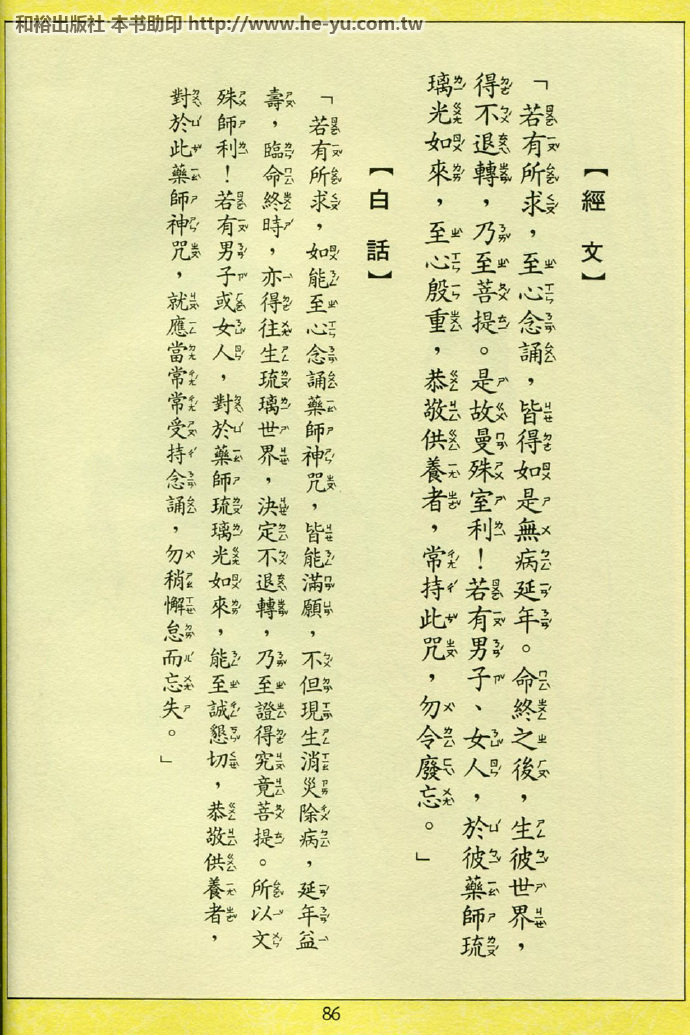 和裕出版社 本书助印 http://www.he-yu.com.tw
【經文】
「若有所求，至心念誦，皆得如是無病延年。命終之後，生彼世界，
得不退轉，乃至菩提。是故曼殊室利！若有男子、女人，於彼藥師琉
璃光如來，至心殷重，恭敬供養者，常持此咒，勿令廢忘。」
【白話】
「若有所求，如能至心念誦藥師神咒，皆能滿願，不但現生消災除病，延年益
壽，臨命終時，亦得往生琉璃世界，決定不退轉，乃至證得究竟菩提。所以文
殊師利！若有男子或女人，對於藥師琉璃光如來，能至誠懇切，恭敬供養者，
對於此藥師神咒，就應當常常受持念誦，勿稍懈怠而忘失。」
86